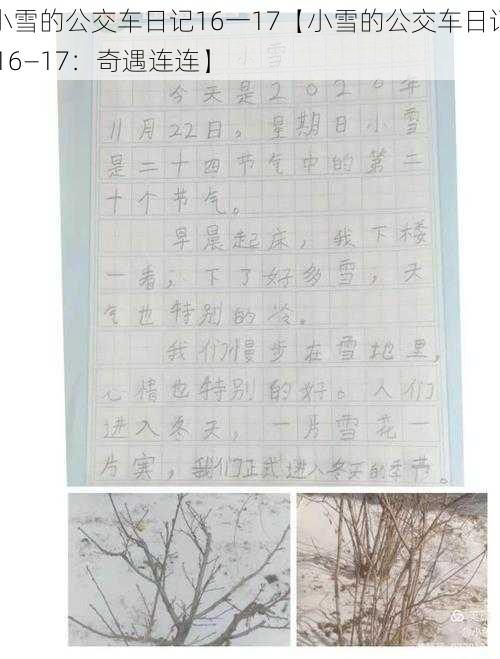 小雪的公交车日记16—17【小雪的公交车日记
16—17：奇遇连连】
小雪
今天是2020年
11月22日，星期日小雪
是二十四节气中的第二
十个节气。
早晨起床，我下楼
一看，下了好多雪，天
气也特别的冷。
我们慢步在雪地里，
心情也特别的好。人们
进入冬天，一片雪花一
片寒，我们正式进入冬天的季节。